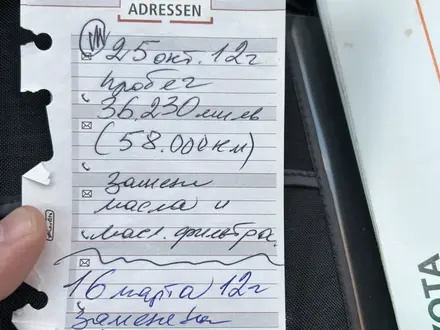 ADRESSEN
25 окт. 12г
пробег
36.230 миль
(58.000 км)
замена
масла и
масл. фильтра.
16 марта 12г
Заменены
OTA